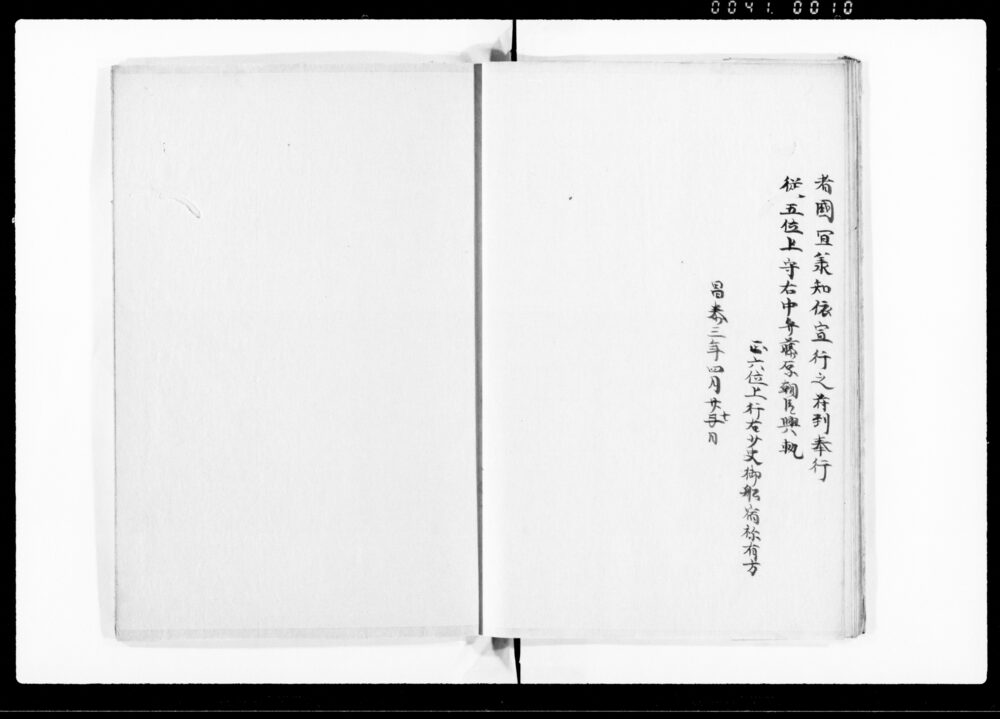 0041. 0010
者國冝羕知依宣行之苻到奉行
從五位上守右中弁藤原朝臣興軌
正六位上行右少史御船宿祢有方
昌泰三年四月廿日